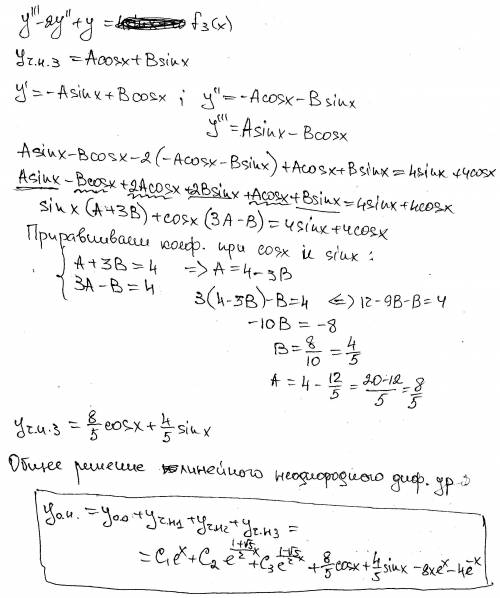 y''' - 2y'' + y = f₃(x)
yч.н.3 = Acosx + Bsinx
y' = -Asinx + Bcosx ; y'' = -Acosx - Bsinx
y''' = Asinx - Bcosx
Asinx - Bcosx - 2(-Acosx - Bsinx) + Acosx + Bsinx = 4sinx + 4cosx
Asinx - Bcosx + 2Acosx + 2Bsinx + Acosx + Bsinx = 4sinx + 4cosx
sinx(A+3B) + cosx(3A-B) = 4sinx + 4cosx
Приравниваем коеф. при cosx и sinx :
{ A + 3B = 4 => A = 4 - 3B
3A - B = 4 3(4-3B) - B = 4 <=> 12 - 9B - B = 4
-10B = -8
B = 8/10 = 4/5
A = 4 - 12/5 = (20-12)/5 = 8/5
yч.н.3 = 8/5 cosx + 4/5 sinx
Общее решение линейного неоднородного диф. ур
yо.н. = yо.о + yч.н1 + yч.н2 + yч.н3 =
= C₁e^x + C₂e^((1+√5)/2 x) + C₃e^((1-√5)/2 x) + 8/5 cosx + 4/5 sinx - 8xe^x - 4e^(-x)